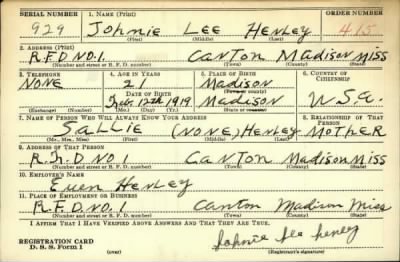 SERIAL NUMBER 1. NAME (Print) ORDER NUMBER
929 JOHNIE LEE HENLEY 415
(First) (Middle) (Last)
2. ADDRESS (Print)
R.F.D NO.1. CANTON MADISON MISS
(Number and street or R. F. D. number) (Town) (County) (State)
3. TELEPHONE 4. AGE IN YEARS 5. PLACE OF BIRTH 6. COUNTRY OF CITIZENSHIP
NONE 21 MADISON
DATE OF BIRTH (Town or county)
12th 1919 MADISON U.S.A.
(Exchange) (Number) (Mo.) (Day) (Yr.) (State or country)
7. NAME OF PERSON WHO WILL ALWAYS KNOW YOUR ADDRESS 8. RELATIONSHIP OF THAT PERSON
SALLIE (NONE) HENLEY MOTHER
(Mr., Mrs., Miss) (First) (Middle) (Last)
9. ADDRESS OF THAT PERSON
NO 1 CANTON MADISON MISS
(Number and street or R. F. D. number) (Town) (County) (State)
10. EMPLOYER'S NAME
HENLEY
11. PLACE OF EMPLOYMENT OR BUSINESS
R.F.D NO. 1 Canton Madison Miss
(Number and street or R. F. D. number) (Town) (County) (State)
I AFFIRM THAT I HAVE VERIFIED ABOVE ANSWERS AND THAT THEY ARE TRUE.
REGISTRATION CARD
D. S. S. Form 1 (over) Johnie lee henley
(Registrant's signature)